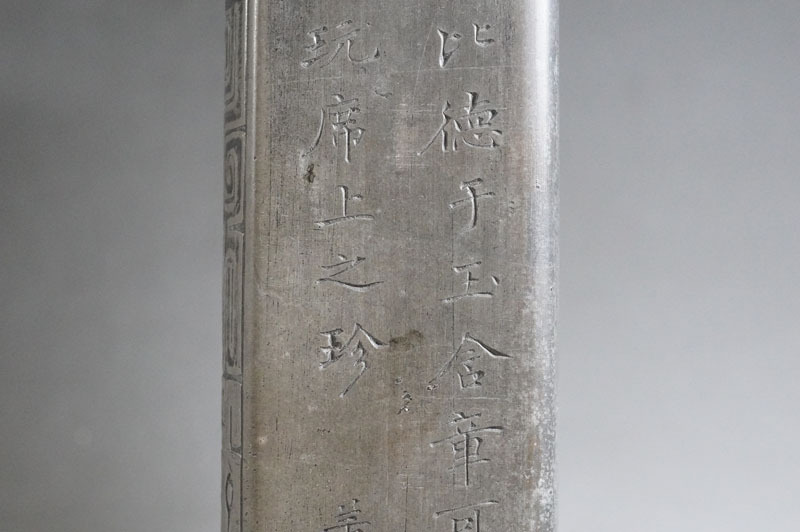 比德于玉含章可
玩席上之珍